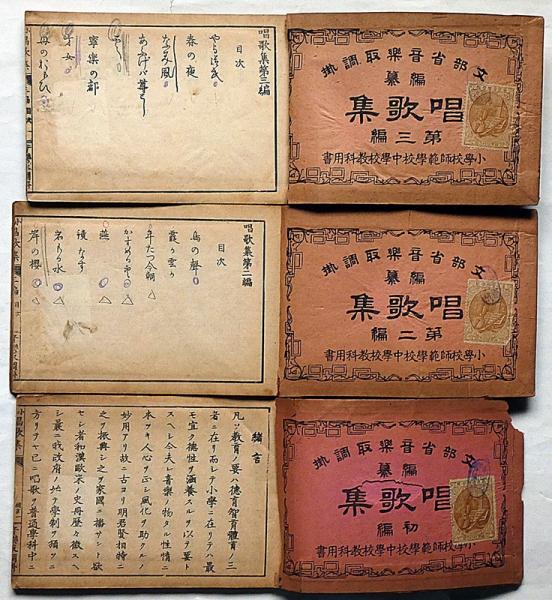 唱歌集第三編
目次
やよ御民
春の夜
なみ風
あふげバ尊し
寧樂の都
才女
母のおもひ
文部省音樂取調掛
編纂
唱歌集
第三編
小學校師範學校中學校教科用書
唱歌集第二編
目次
鳥の聲
霞か雲か
年たつ今朝
かすめる空
燕
鏡なす
岩もる水
岸の櫻
文部省音樂取調掛
編纂
唱歌集
第二編
小學校師範學校中學校教科用書
緒言
凡ソ教育ノ要ハ德育智育體育ノ三
者ニ在リ而シテ小學ニ在リテハ最
モ宜ク德性ヲ涵養スルヲ以テ要ト
スヘシ今夫レ音樂ノ物タル性情ニ
本ツキ人心ヲ正シ風化ヲ助クルノ
妙用アリ故ニ古ヨリ明君賢相特ニ
之ヲ振興シ之ヲ家國ニ播サント欲
セシ者和漢歐米ノ史冊歷々徵スヘ
シ曩ニ我政府ノ始テ學制ヲ頒ツニ
方リテヤ已ニ唱歌ヲ普通學科中ニ
文部省音樂取調掛
編纂
唱歌集
初編
小學校師範學校中學校教科用書